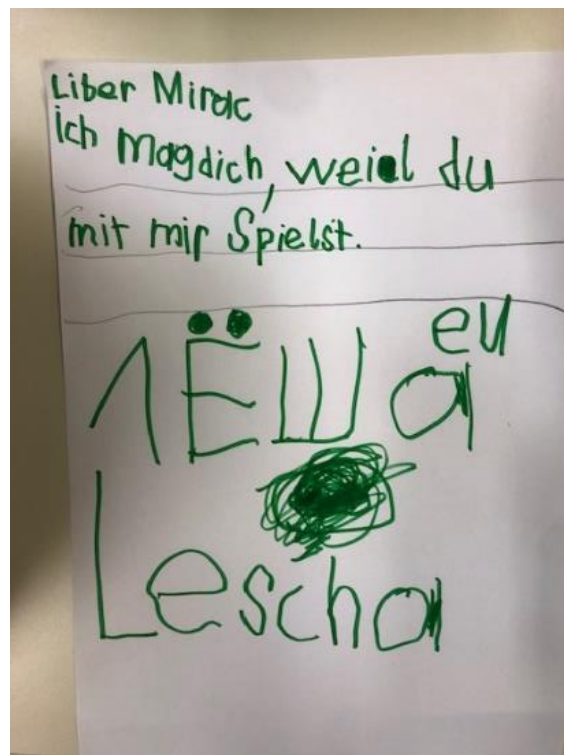 Liber Mirac
ich mag dich, weil du
mit mir Spielst.
eu
лЁШа
Lescha